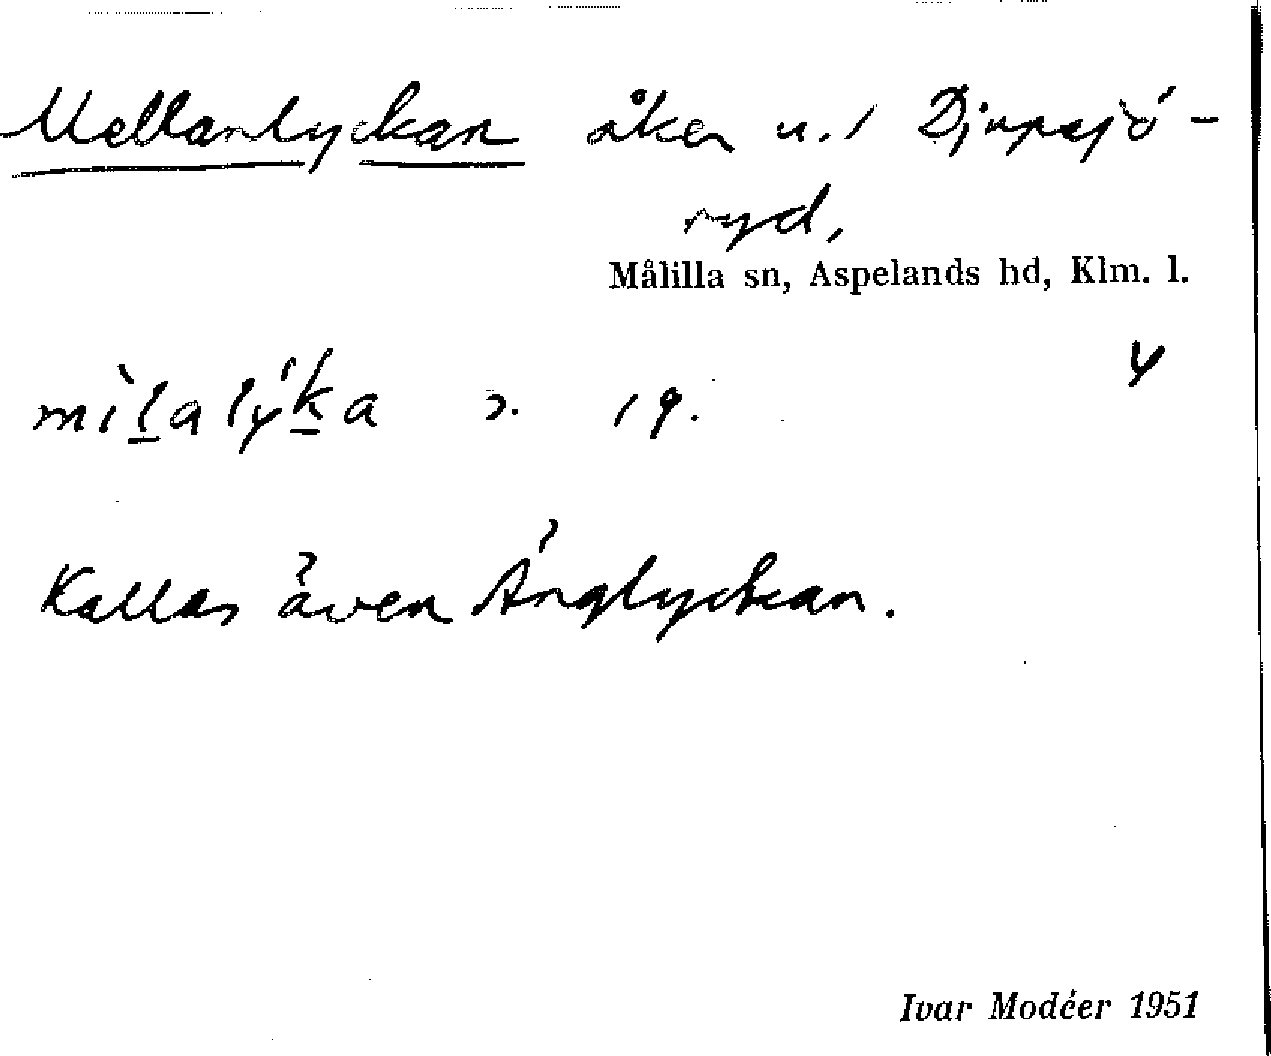 Mellanlyckan åker u. 1 Djupsjö-
ryd,
Målilla sn, Aspelands hd, Klm. l.
4
mìl̲alýk̲a 2. 19.
Kallas även Änglyckan.
Ivar Modéer 1951